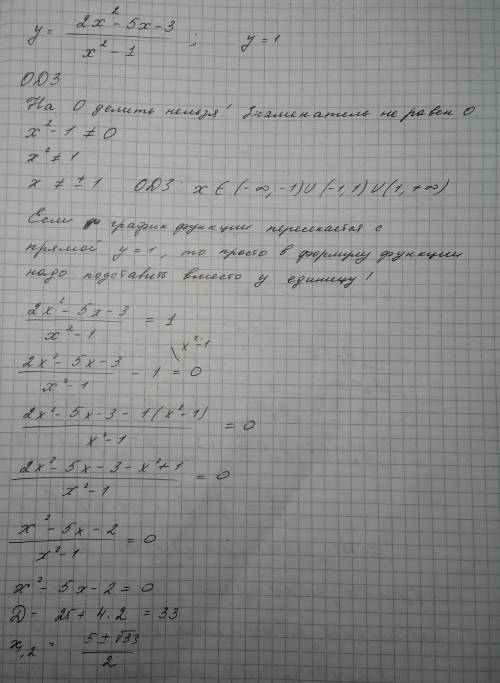 y = (2x² - 5x - 3)/(x² - 1) ; y = 1
ОДЗ
На 0 делить нельзя! Знаменатель не равен 0.
x² - 1 ≠ 0
x² ≠ 1
x ≠ ± 1 ОДЗ: x ∈ (-∞, -1) ∪ (-1, 1) ∪ (1, +∞)
Если график функции пересекается с
прямой y = 1, то просто в формулу функции
надо подставить вместо y единицу!
(2x² - 5x - 3)/(x² - 1) = 1
(2x² - 5x - 3)/(x² - 1) - 1 \x² - 1 = 0
(2x² - 5x - 3 - 1(x² - 1))/(x² - 1) = 0
(2x² - 5x - 3 - x² + 1)/(x² - 1) = 0
(x² - 5x - 2)/(x² - 1) = 0
x² - 5x - 2 = 0
Д = 25 + 4·2 = 33
x₁,₂ = (5 ± √33)/2